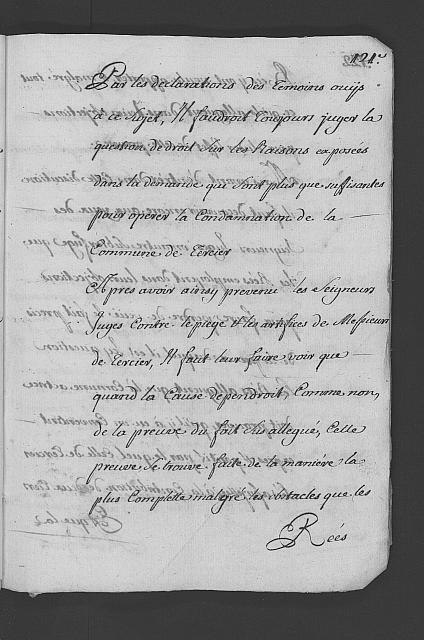 121.
Par les declarations des temoins ouijs
a ce sujet, Il faudroit toujours juger la
question de droit sur les Raisons exposées
dans la demande qui sont plus que suffisantes
pour operer la Condamnation de la
Commune de Tercier
Apres avoir ainsy prevenu les Seigneurs
Juges Contre le piege et les artifices de Messieurs
de Tercier, Il faut leur faire voir que
quand la Cause dependroit Comme non,
de la preuve du fait allegué, Celle
preuve se trouve faite de la maniére la
plus Complette malgré les obstacles que les
Reés